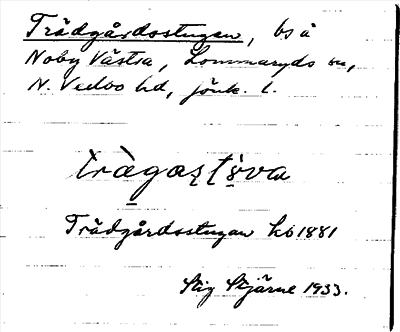 Trädgårdsstugan, bs å
Noby Västra, Lommaryds sn,
N. Vedbo hd, Jönk. l.
tràgaʂt̀ǫva
Trädgårdsstugan hb 1881
Stig Stjärne 1933.